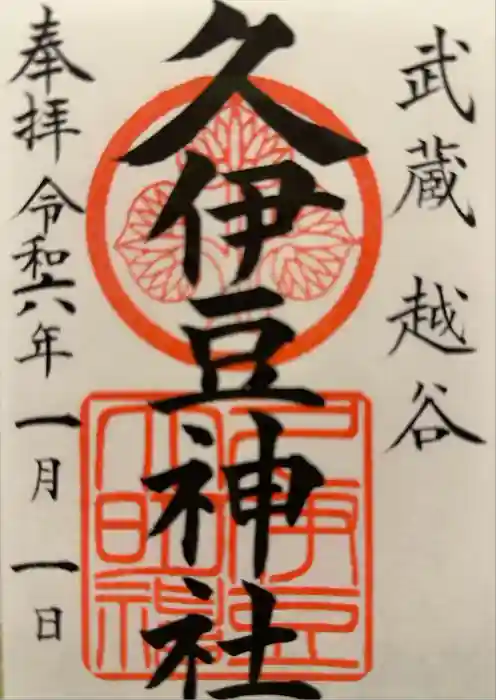 武蔵 越谷
久伊豆神社
奉拝 令和六年 一月 一日